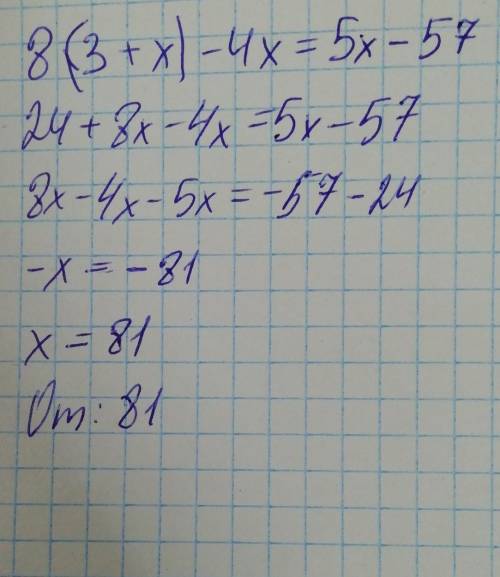 8(3+x)-4x=5x-57
24+8x-4x=5x-57
8x-4x-5x=-57-24
-x=-81
x=81
От: 81